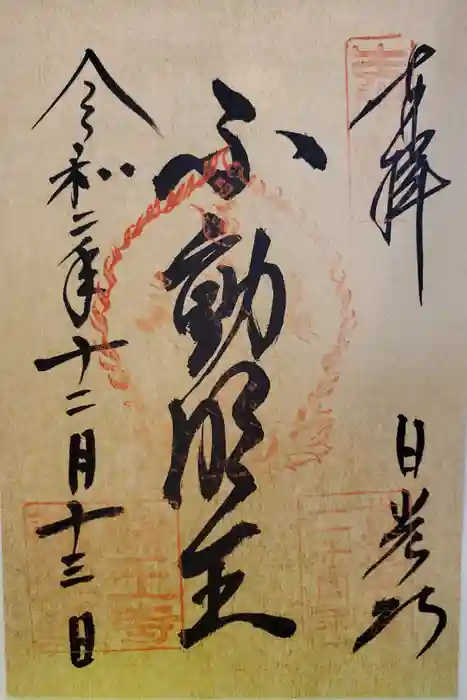 奉拝
不動明王
令和二年十二月十三日